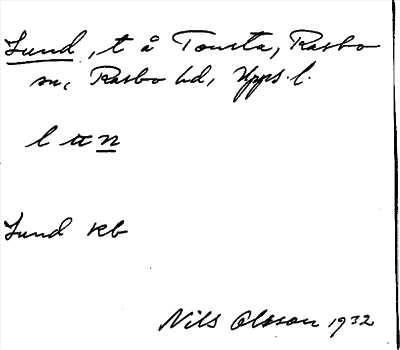 Lund, t å Tomta, Rasbo
sn, Rasbo hd, Upps. l.
Lund kb
Nils Olsson 1932